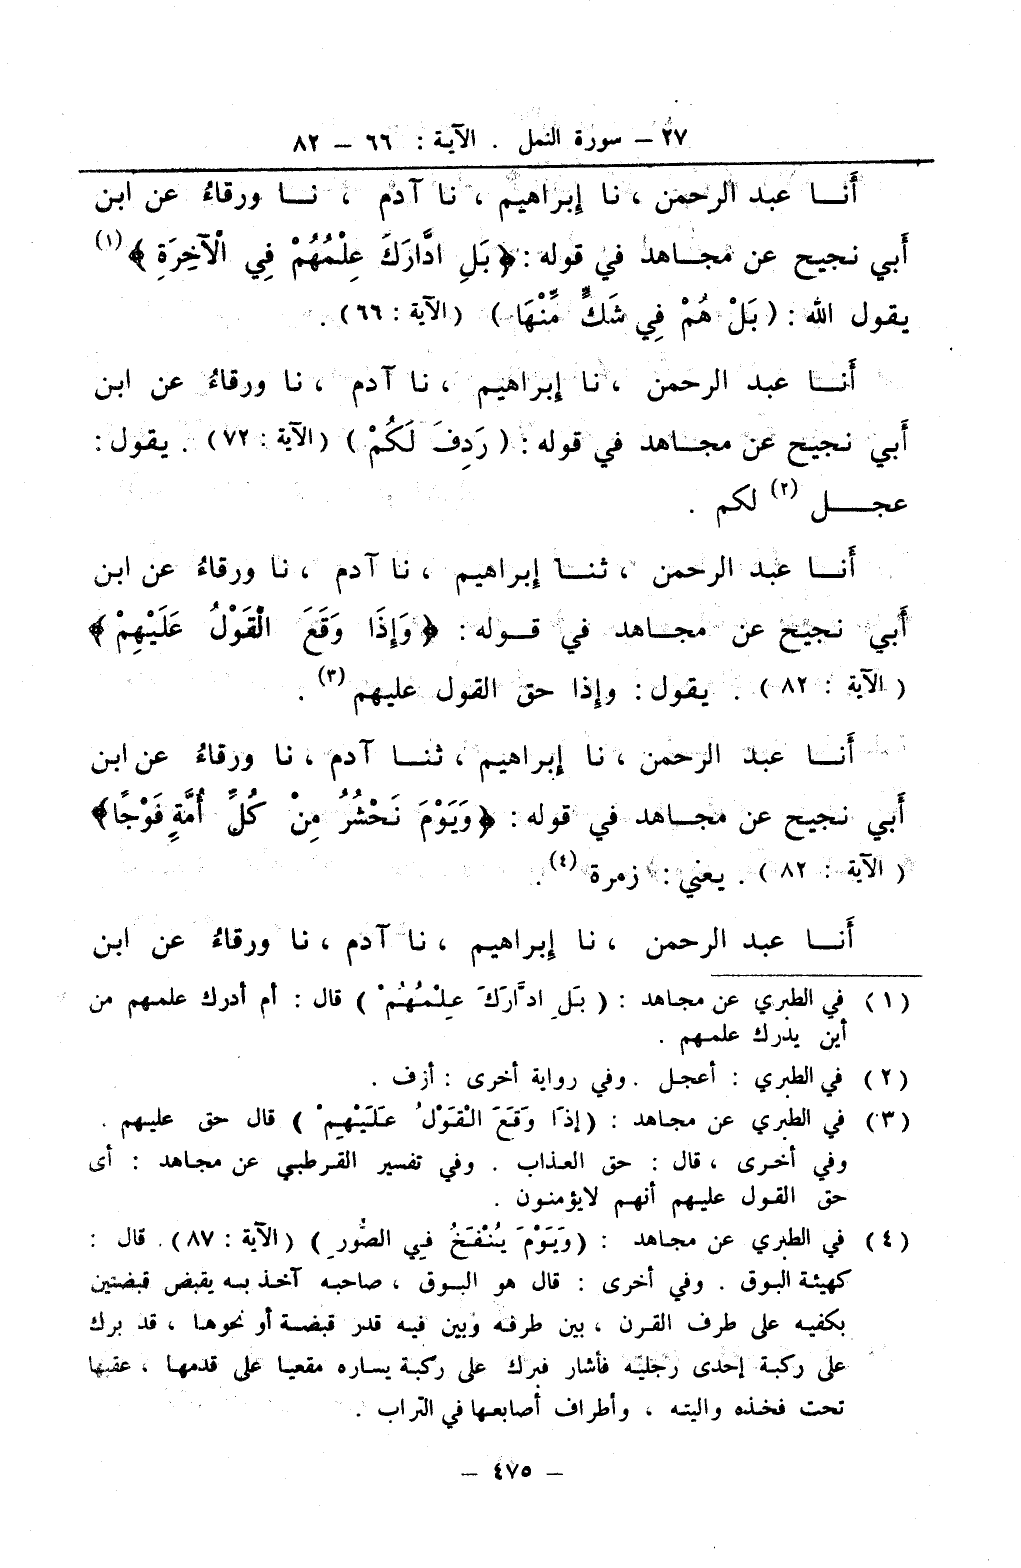 ٢٧ – سورة النمل . الآية : ٦٦ – ٨٢
أَنـا عبد الرحمن ، نا إبراهيم ، نا آدم ، نـا ورقاءُ عن ابن
أَبي نجيح عن مجـاهد في قوله : ﴿ بَلِ ادَّارَكَ عِلْمُهُمْ فِي الْآخِرَةِ ﴾ (١)
يقول الله : ( بَلْ هُمْ فِي شَكٍّ مِّنْهَا ) ( الآية : ٦٦ ) .
أَنـا عبد الرحمن ، نا إبراهيم ، نا آدم ، نا ورقاءُ عن ابن
أَبي نجيح عن مجـاهد في قوله : ( رَدِفَ لَكُمْ ) ( الآية : ٧٢ ) . يقول :
عجـل (٢) لكم .
أَنـا عبد الرحمن ، ثنـا إبراهيم ، نا آدم ، نا ورقاءُ عن ابن
أَبي نجيح عن مجـاهد في قـوله : ﴿ وَإِذَا وَقَعَ الْقَوْلُ عَلَيْهِمْ ﴾
( الآية : ٨٢ ) . يقول : وإذا حق القول عليهم (٣) .
أَنـا عبد الرحمن ، نا إبراهيم ، ثنـا آدم ، نا ورقاءُ عن ابن
أَبي نجيح عن مجـاهد في قوله : ﴿ وَيَوْمَ نَحْشُرُ مِنْ كُلِّ أُمَّةٍ فَوْجًا ﴾
( الآية : ٨٢ ) . يعني : زمرة (٤) .
أَنـا عبد الرحمن ، نا إبراهيم ، نا آدم ، نا ورقاءُ عن ابن
(١) في الطبري عن مجاهد : ( بَلِ ادَّارَكَ عِلْمُهُمْ ) قال : أم أدرك علمهم من
أين يدرك علمهم .
(٢) في الطبري : أعجل . وفي رواية أخرى : أزف .
(٣) في الطبري عن مجاهد : ( إِذَا وَقَعَ الْقَوْلُ عَلَيْهِمْ ) قال حق عليهم .
وفي أخرى ، قال : حق العذاب . وفي تفسير القرطبي عن مجاهد : أى
حق القول عليهم أنهم لايؤمنون .
(٤) في الطبري عن مجاهد : ( وَيَوْمَ يُنْفَخُ فِي الصُّورِ ) ( الآية : ٨٧ ) . قال :
كهيئة البوق . وفي أخرى : قال هو البوق ، صاحبه آخذ به يقبض قبضتين
بكفيه على طرف القرن ، بين طرفه وبين فيه قدر قبضة أو نحوها ، قد برك
على ركبة إحدى رجليه فأشار فبرك على ركبة يساره مقعيا على قدمها ، عقبها
تحت فخذه واليته ، وأطراف أصابعها في التراب .
– ٤٧٥ –